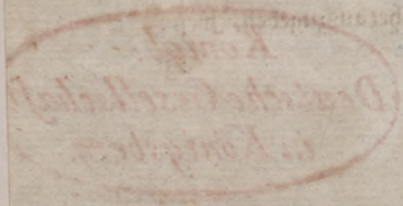 Königl.
Deutsche Gesellschaft
in Königsberg